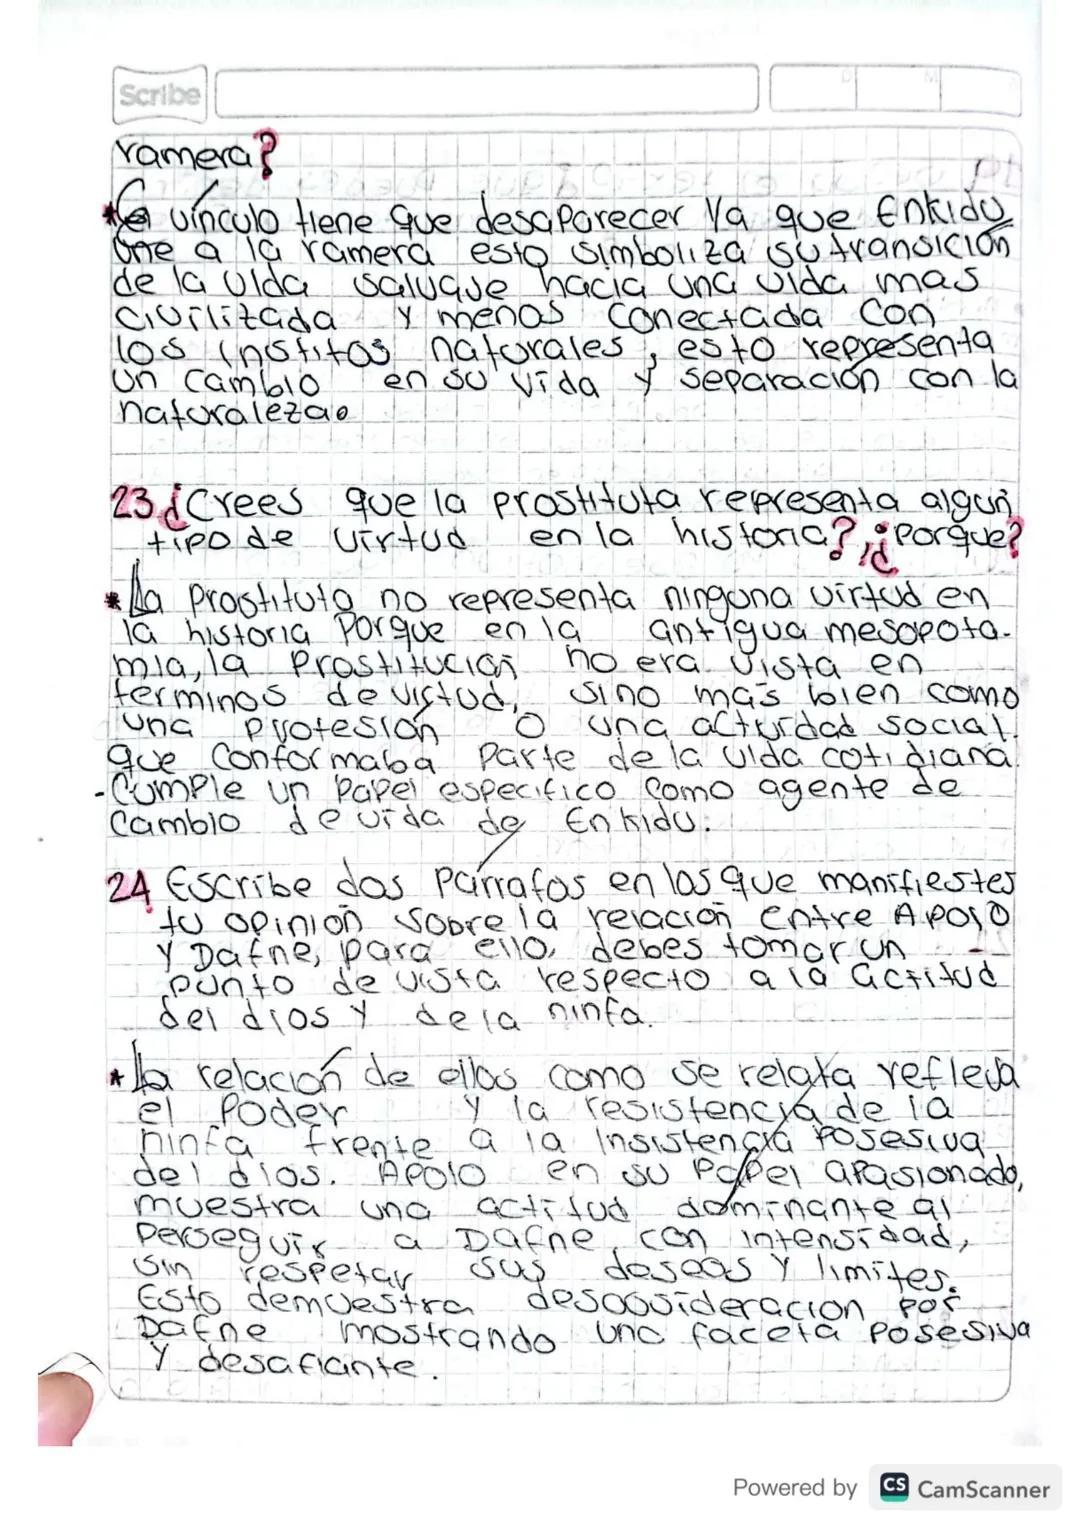 Scribe
D M
ramera?
*El vínculo tiene que desaparecer Ya que Enkidu
une a la ramera esto simboliza su transición
de la vida salvaje hacia una vida mas
civilizada y menos conectada con
los institos naturales, esto representa
un cambio en su vida y separación con la
naturaleza.
23 ¿Crees que la prostituta representa algun
tipo de virtud en la historia?, ¿Porque?
*La Prostituta no representa ninguna virtud en
la historia Porque en la antigua mesopota-
mia, la Prostitución no era vista en
terminos de virtud, sino más bien como
una profesión o una actividad social
que conformaba parte de la vida cotidiana.
-Cumple un Papel especifico como agente de
Cambio de vida de Enkidu.
24 Escribe dos Párrafos en los que manifiestes
tu opinión sobre la relación entre Apolo
Y Dafne, para ello, debes tomar un
punto de vista respecto a la actitud
del dios y de la ninfa.
*La relación de ellos como se relata refleja
el Poder y la resistencia de la
ninfa frente a la Insistencia Posesiva
del dios. Apolo en su Papel apasionado,
muestra una actitud dominante al
Perseguir a Dafne con intensidad,
sin respetar sus deseos Y limites.
Esto demuestra por
Dafne mostrando una faceta Posesiva
Y desafiante.
Powered by CS CamScanner